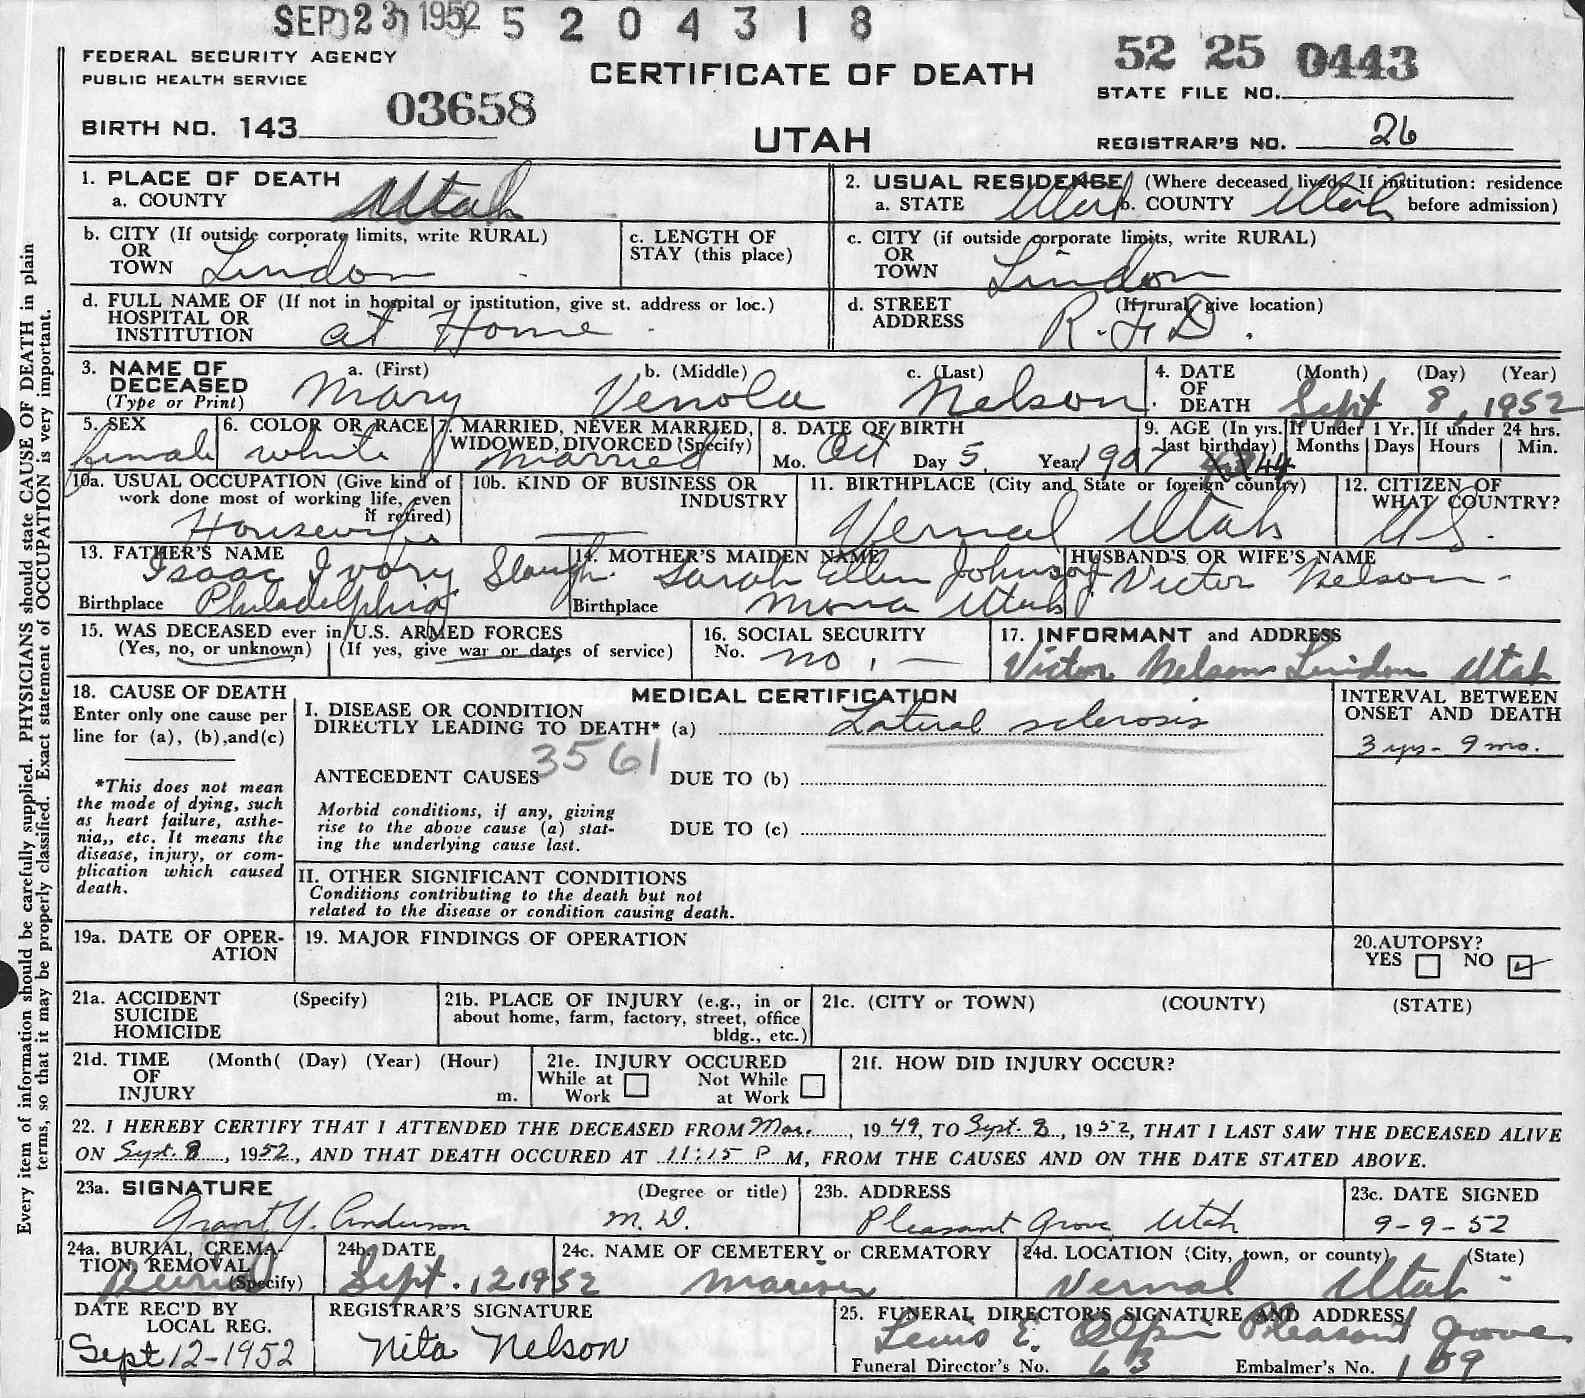 SEP 23 1952 5 2 0 4 3 1 8
FEDERAL SECURITY AGENCY
PUBLIC HEALTH SERVICE
CERTIFICATE OF DEATH
52 25 0443
STATE FILE NO.
03658
BIRTH NO. 143
UTAH
REGISTRAR'S NO. 26
1. PLACE OF DEATH
a. COUNTY Utah
2. USUAL RESIDENCE (Where deceased lived. If institution: residence
a. STATE Utah b. COUNTY Utah before admission)
b. CITY (If outside corporate limits, write RURAL)
OR
TOWN Lindon
c. LENGTH OF
STAY (this place)
c. CITY (if outside corporate limits, write RURAL)
OR
TOWN Lindon
d. FULL NAME OF (If not in hospital or institution, give st. address or loc.)
HOSPITAL OR
INSTITUTION at Home
d. STREET (If rural, give location)
ADDRESS R.F.D.
3. NAME OF
DECEASED
(Type or Print)
a. (First) b. (Middle) c. (Last)
Mary Venola Nelson
4. DATE (Month) (Day) (Year)
OF
DEATH Sept 8, 1952
5. SEX
female
6. COLOR OR RACE
white
7. MARRIED, NEVER MARRIED,
WIDOWED, DIVORCED (Specify)
married
8. DATE OF BIRTH
Mo. Oct Day 5, Year 1907
9. AGE (In yrs.
last birthday)
44
If Under 1 Yr.
Months Days
If under 24 hrs.
Hours Min.
10a. USUAL OCCUPATION (Give kind of
work done most of working life, even
if retired)
Housewife
10b. KIND OF BUSINESS OR
INDUSTRY
—
11. BIRTHPLACE (City and State or foreign country)
Vernal Utah
12. CITIZEN OF
WHAT COUNTRY?
U.S.
13. FATHER'S NAME
Isaac Ivory Slaugh
Birthplace Philadelphia
14. MOTHER'S MAIDEN NAME
Sarah Ellen Johnson
Birthplace Mona Utah
HUSBAND'S OR WIFE'S NAME
J. Victor Nelson
15. WAS DECEASED ever in U.S. ARMED FORCES
(Yes, no, or unknown) (If yes, give war or dates of service)
16. SOCIAL SECURITY
No. no, —
17. INFORMANT and ADDRESS
Victor Nelson Lindon Utah
18. CAUSE OF DEATH
Enter only one cause per
line for (a), (b),and(c)
*This does not mean
the mode of dying, such
as heart failure, asthe-
nia,, etc. It means the
disease, injury, or com-
plication which caused
death.
MEDICAL CERTIFICATION
I. DISEASE OR CONDITION
DIRECTLY LEADING TO DEATH* (a) Lateral sclerosis
3561
ANTECEDENT CAUSES DUE TO (b)
Morbid conditions, if any, giving
rise to the above cause (a) stat-
ing the underlying cause last.
DUE TO (c)
II. OTHER SIGNIFICANT CONDITIONS
Conditions contributing to the death but not
related to the disease or condition causing death.
INTERVAL BETWEEN
ONSET AND DEATH
3 yrs- 9 mo.
19a. DATE OF OPER-
ATION
19. MAJOR FINDINGS OF OPERATION
20.AUTOPSY?
YES NO
21a. ACCIDENT (Specify)
SUICIDE
HOMICIDE
21b. PLACE OF INJURY (e.g., in or
about home, farm, factory, street, office
bldg., etc.)
21c. (CITY or TOWN) (COUNTY) (STATE)
21d. TIME (Month( (Day) (Year) (Hour)
OF
INJURY m.
21e. INJURY OCCURED
While at Not While
Work at Work
21f. HOW DID INJURY OCCUR?
22. I HEREBY CERTIFY THAT I ATTENDED THE DECEASED FROM Mar., 1949, TO Sept. 8, 1952, THAT I LAST SAW THE DECEASED ALIVE
ON Sept. 8, 1952, AND THAT DEATH OCCURED AT 11:15 P M, FROM THE CAUSES AND ON THE DATE STATED ABOVE.
23a. SIGNATURE (Degree or title)
Grant Y. Anderson M.D.
23b. ADDRESS
Pleasant Grove Utah
23c. DATE SIGNED
9-9-52
24a. BURIAL, CREMA-
TION, REMOVAL
(Specify)
Burial
24b. DATE
Sept. 12 1952
24c. NAME OF CEMETERY or CREMATORY
24d. LOCATION (City, town, or county) (State)
Vernal Utah
DATE REC'D BY
LOCAL REG.
Sept 12-1952
REGISTRAR'S SIGNATURE
Nita Nelson
25. FUNERAL DIRECTOR'S SIGNATURE AND ADDRESS
Lewis E. Olpin Pleasant Grove
Funeral Director's No. 63 Embalmer's No. 109
Every item of information should be carefully supplied. PHYSICIANS should state CAUSE OF DEATH in plain
terms, so that it may be properly classified. Exact statement of OCCUPATION is very important.